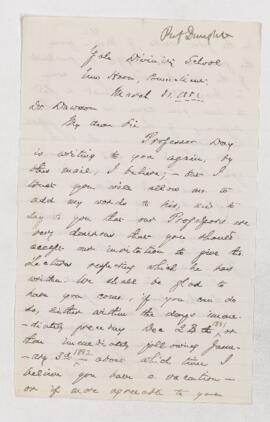 Prof Dwight
Yale Divinity School
New Haven, Connecticut.
March 31, 1881.
Dr Dawson
My dear Sir
Professor Day
is writing to you again, by
this mail, I believe; - but I
trust you will allow me to
add my words to his, and to
say to you that our Professors are
very desirous that you should
accept our invitation to give the
Lectures respecting which he has
written. We shall be glad to
have you come, if you can do
so, either within the days imme-
-diately preceding Dec 23d, 1881, or
those immediately following Janu-
-ary 3d, 1882 about which time I
believe you have a vacation -
or if more agreeable to you